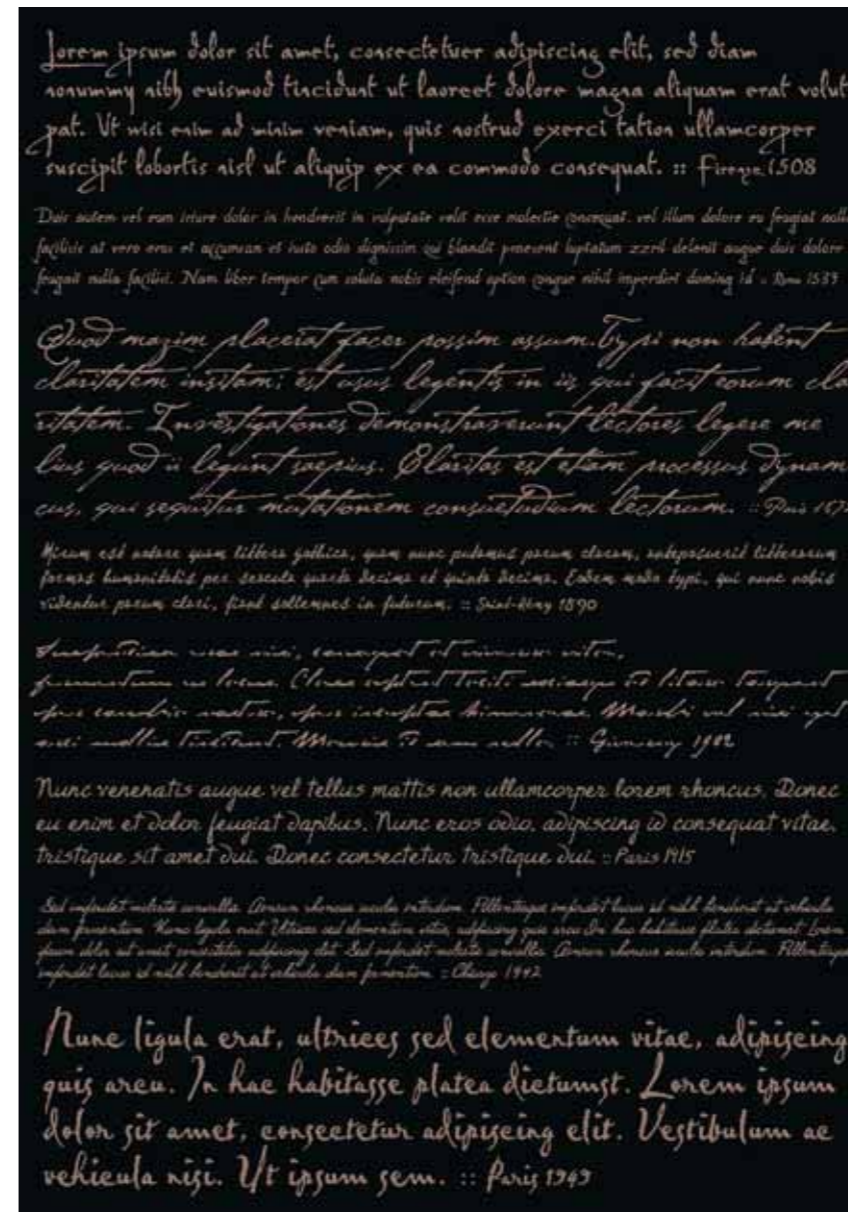 Lorem ipsum dolor sit amet, consectetuer adipiscing elit, sed diam
nonummy nibh euismod tincidunt ut laoreet dolore magna aliquam erat volut
pat. Ut wisi enim ad minim veniam, quis nostrud exerci tation ullamcorper
suscipit lobortis nisl ut aliquip ex ea commodo consequat. :: Firenze 1508
Duis autem vel eum iriure dolor in hendrerit in vulputate velit esse molestie consequat. vel illum dolore eu feugiat nulla
facilisis at vero eros et accumsan et iusto odio dignissim qui blandit praesent luptatum zzril delenit augue duis dolore
feugait nulla facilisi. Nam liber tempor cum soluta nobis eleifend option congue nihil imperdiet doming id :: Roma
Quod mazim placerat facer possim assum. Typi non habent
claritatem insitam; est usus legentis in iis qui facit eorum cla
ritatem. Investigationes demonstraverunt lectores legere me
lius quod ii legunt saepius. Claritas est etiam processus dynam
cus, qui sequitur mutationem consuetudium lectorum. ::
Mirum est notare quam littera gothica, quam nunc putamus parum claram, anteposuerit litterarum
formas humanitatis per seacula quarta decima et quinta decima. Eodem modo typi, qui nunc nobis
videntur parum clari, fiant sollemnes in futurum. :: Saint-Rémy 1890
Suspendisse
Class aptent taciti sociosqu ad litora torquent
per conubia nostra, per inceptos himenaeos. Morbi vel nisi eget
orci mollis tincidunt. Mauris :: Germany 1902
Nunc venenatis augue vel tellus mattis non ullamcorper lorem rhoncus. Donec
eu enim et dolor feugiat dapibus. Nunc eros odio, adipiscing id consequat vitae,
tristique sit amet dui. Donec consectetur tristique dui. :: Paris 1915
Sed imperdiet molestie convallis. Aenean rhoncus iaculis interdum. Pellentesque imperdiet lacus id nibh hendrerit at vehicula
diam fermentum. Nunc ligula erat Ultrices sed elementum vitae, adipiscing quis arcu In hac habitasse platea dictumst. Lorem
ipsum dolor sit amet consectetur adipiscing elit. Sed imperdiet molestie convallis. Aenean rhoncus iaculis interdum. Pellentesque
imperdiet lacus id nibh hendrerit at vehicula diam fermentum. :: Chicago 1942
Nunc ligula erat, ultrices sed elementum vitae, adipiscing
quis arcu. In hac habitasse platea dictumst. Lorem ipsum
dolor sit amet, consectetur adipiscing elit. Vestibulum ac
vehicula nisi. Ut ipsum sem. :: Paris 1949